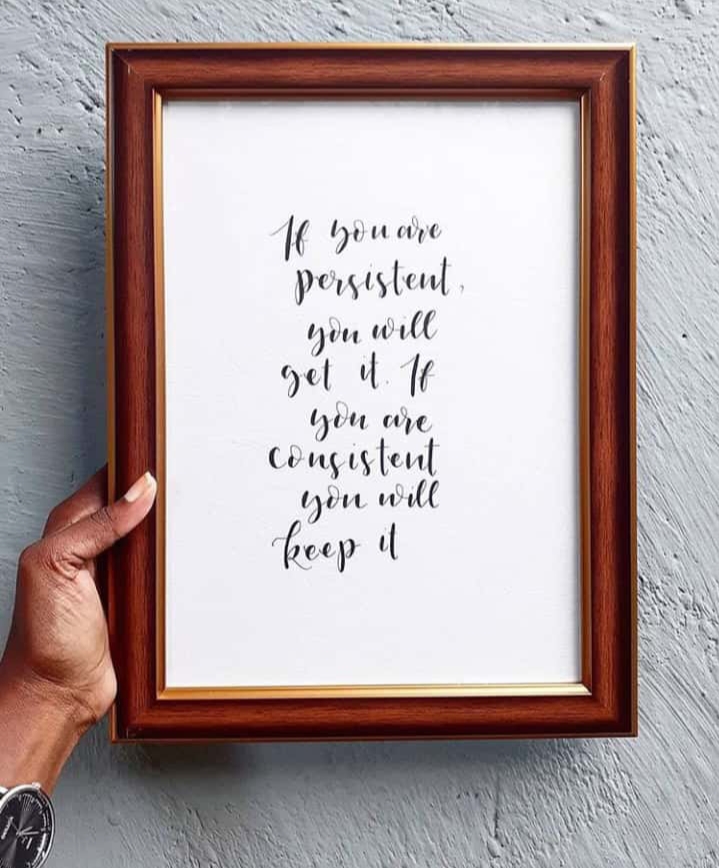 If you are
persistent,
you will
get it. If
you are
consistent
you will
keep it